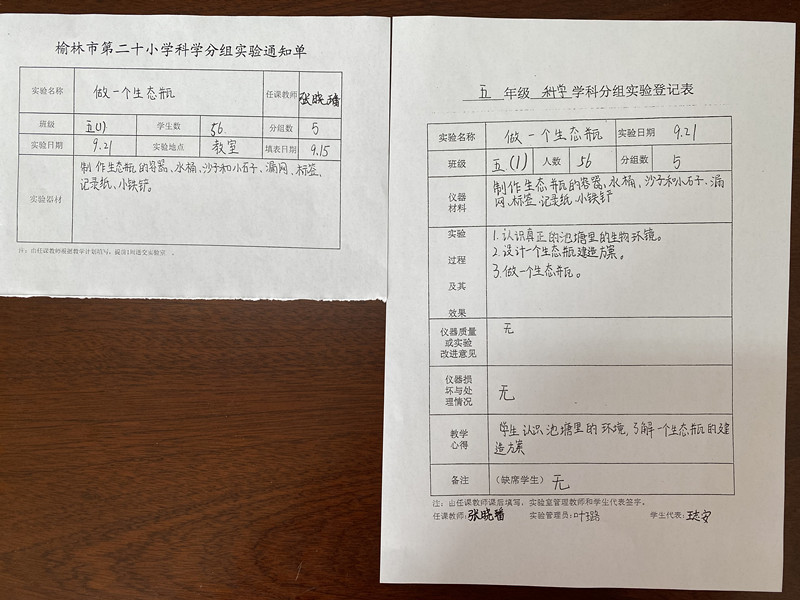 榆林市第二十小学科学分组实验通知单
实验名称 做一个生态瓶 任课教师 张晓璠
班级 五(1) 学生数 56 分组数 5
实验日期 9.21 实验地点 教室 填表日期 9.15
实验器材 制作生态瓶的容器、水桶、沙子和小石子、漏网、标签、
记录纸、小铁铲。
注:由任课教师根据教学计划填写,提前1周送交实验室。
五 年级 科学 学科分组实验登记表
实验名称 做一个生态瓶 实验日期 9.21
班级 五(1) 人数 56 分组数 5
仪器
材料
制作生态瓶的容器、水桶、沙子和小石子、漏
网、标签、记录纸、小铁铲
实验
过程
及其
效果
1.认识真正的池塘里的生物环镜。
2.设计一个生态瓶建造方案。
3.做一个生态瓶。
仪器质量
或实验
改进意见
无
仪器损
坏与处
理情况
无
教学
心得
学生认识池塘里的环境,了解一个生态瓶的建
造方案
备注 (缺席学生) 无
注:由任课教师课后填写,实验室管理教师和学生代表签字。
任课教师:张晓璠 实验管理员:叶璐 学生代表: